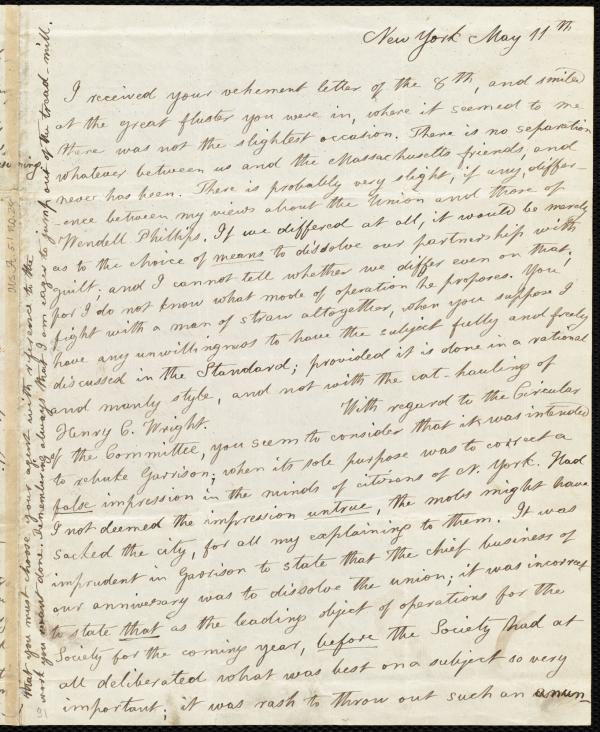 New York May 11th
I received your vehement letter of the 8th, and smiled
at the great fluster you were in, where it seemed to me
there was not the slightest occasion. There is no separation
whatever between us and the Massachusetts friends, and
never has been. There is probably very slight, if any, differ-
-ence between my views about the Union and those of
Wendell Phillips. If we differed at all, it would be merely
as to the choice of means to dissolve our partnership with
guilt; and I cannot tell whether we differ even on that;
for I do not know what mode of operation he proposes. You
fight with a man of straw altogether, when you suppose I
have any unwillingness to have the subject fully and freely
discussed in the Standard; provided it is done in a rational
and manly style, and not with the cat-haulings of
Henry C. Wright.
With regard to the Circular
of the Committee, you seem to consider that it was intended
to rebuke Garrison; when its sole purpose was to correct a
false impression in the minds of citizens of N. York. Had
I not deemed the impression untrue, the mobs might have
sacked the city, for all my explaining to them. It was
imprudent in Garrison to state that the chief business of
our anniversary was to dissolve the union; it was incorrect
to state that as the leading object of operations for the
Society for the coming year, before the Society had at
all deliberated what was best on a subject so very
important; it was rash to throw out such an anun-
that you must choose your agent with reference to the
work you want done. Remembering always that I am eager to jump out of the tread-mill.